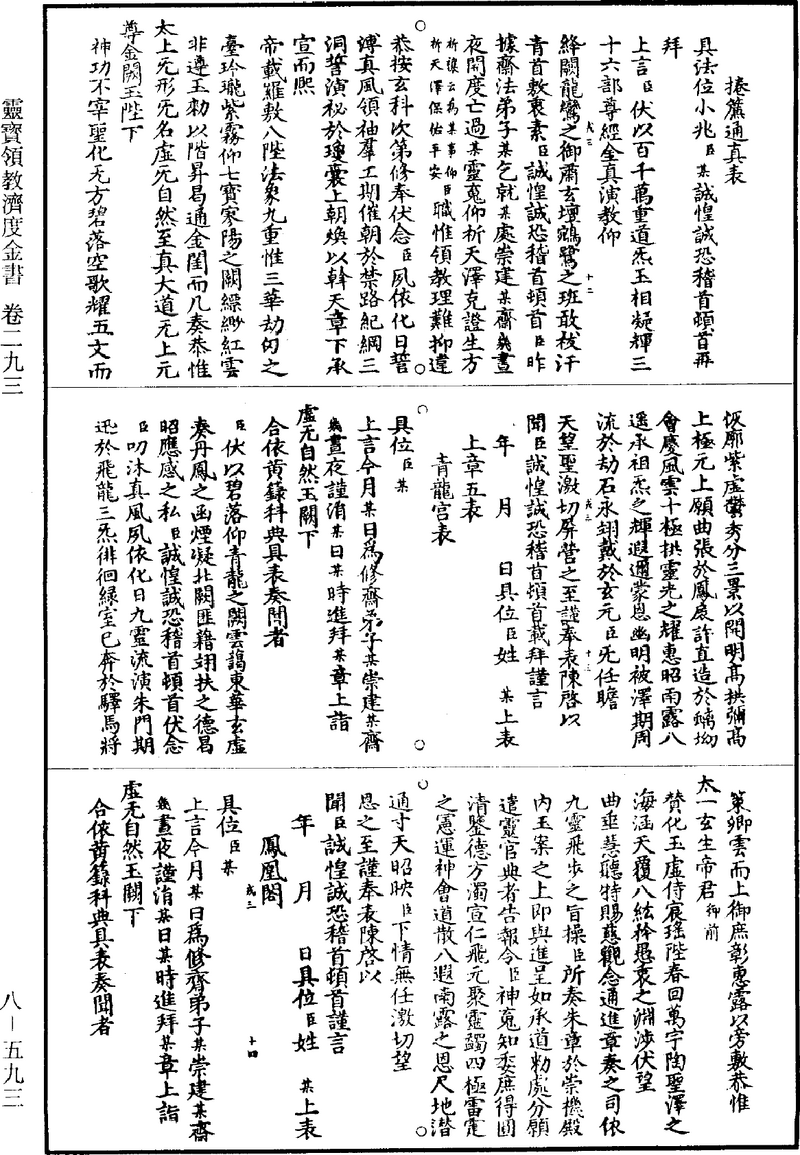 靈寶領教濟度金書　卷二九三
八－五九三
捲簾通真表
具法位小兆臣某誠惶誠恐稽首頓首再
拜
上言臣伏以百千萬重道炁玉相凝輝三
十六部尊經全真演教仰
絳闕龍鸞之御肅玄壇鵷鷺之班敢祓汙
青首敷衷素臣誠惶誠恐稽首頓首臣昨
據齋法弟子某乞就某處崇建某齋幾晝
夜開度亡過某靈魂仰祈天澤克證生方
祈禳云為某事仰
祈天澤保佑平安臣職惟領教理難抑違
恭按玄科次第修奉伏念臣夙依化日誓
溥真風領袖羣工期催朝於禁路紀綱三
洞誓演祕於瓊囊上朝煥以斡天章下承
宣而熙
帝載羅敷八陛法象九重惟三華劫仞之
臺玲瓏紫霧仰七寶寥陽之闕繚緲紅雲
非遵玉勑以階昇曷通金闺而几奏恭惟
太上无形无名虛无自然至真大道元上元
尊金闕玉陛下
神功不宰聖化无方碧落空歌耀五文而
恢廓紫虛欝秀分三景以開明高拱彌高
上極元上願曲張於鳳扆許直造於螭坳
會慶風雲十極拱靈光之耀惠昭雨露八
遥承祖炁之輝遐邇蒙恩幽明被澤期周
流於劫石永翊戴於玄元臣无任瞻
天望聖激切屏營之至謹奉表陳啓以
聞臣誠惶誠恐稽首頓首載拜謹言
年　月　日具位臣姓　某上表
上章五表
青龍宫表
具位臣某
上言今月某日爲修齋弟子某崇建某齋
幾晝夜謹消某日某時進拜某章上詣
虛无自然玉闕下
合依黄籙科典具表奏聞者
臣伏以碧落仰青龍之闕雲藹東華玄虛
奏丹鳳之函煙凝北闕匪藉翊扶之德曷
昭應感之私臣誠惶誠恐稽首頓首伏念
臣叨沐真風夙依化日九靈流演朱門期
迅於飛龍三炁徘徊緑室已奔於驛馬將
策卿雲而上御庶彰惠露以旁敷恭惟
太一玄生帝君御前
贊化玉虛侍宸瑶陛春回萬宇陶聖澤之
海涵天覆八紘矜愚衷之淵涉伏望
曲垂慧聽特賜慈觀念通進章奏之司依
九靈飛步之旨操臣所奏朱章於崇機殿
内玉案之上即與進呈如承道勑處分願
遣靈官典者告報令臣神魂知委庶得圓
清鑒德方濁宣仁飛元聚靈蠲四極雷霆
之憲運神會道散八遐雨露之恩尺地潜
通寸天昭映臣下情無任激切望
恩之至謹奉表陳啓以
聞臣誠惶誠恐稽首頓首謹言
年　月　日具位臣姓　某上表
鳳凰閣
具位臣某
上言今月某日爲修齋弟子某崇建某齋
幾晝夜謹消某日某時進拜某章上詣
虛无自然玉闕下
合依黄籙科典具表奏聞者